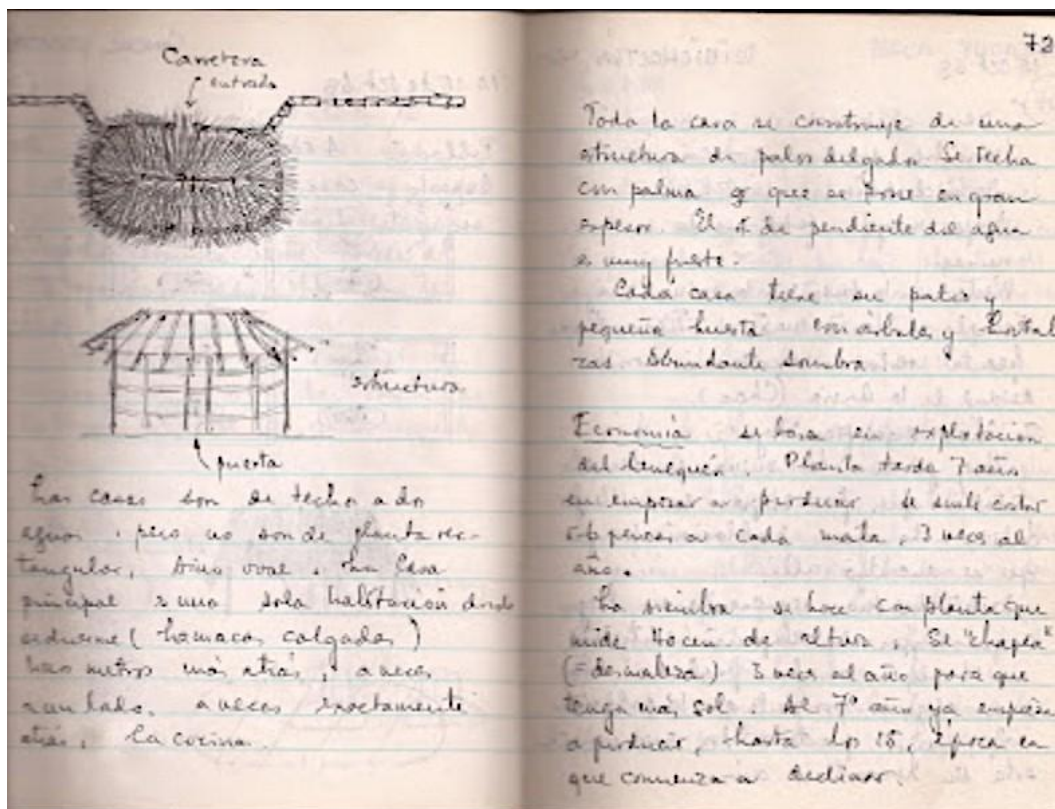 Carretera
entrada
estructura
puerta
Las casas son de techo a dos
aguas, pero no son de planta rec-
tangular, sino oval. La casa
principal es una sola habitación donde
se duerme (hamacas colgadas)
Unos metros más atrás, a veces
a un lado, a veces exactamente
atrás, la cocina.
72
Toda la casa se construye de una
estructura de palos delgados. Se techa
con palma que se pone en gran
espesor. El de pendiente del agua
es muy fuerte.
Cada casa tiene su patio y
pequeña huerta con árboles y hortali
zas. Abundante sombra.
Economía se basa en explotación
del henequén. Planta tarda 7 años
en empezar a producir. Se suele cortar
5-6 pencas a cada mata, 3 veces al
año.
La siembra se hace con planta que
mide 40 cm de altura. Se "chapea"
(=desmaleza) 3 veces al año para que
tenga más sol. Al 7º año ya empieza
a producir, hasta los 15, época en
que comienza a declinar.